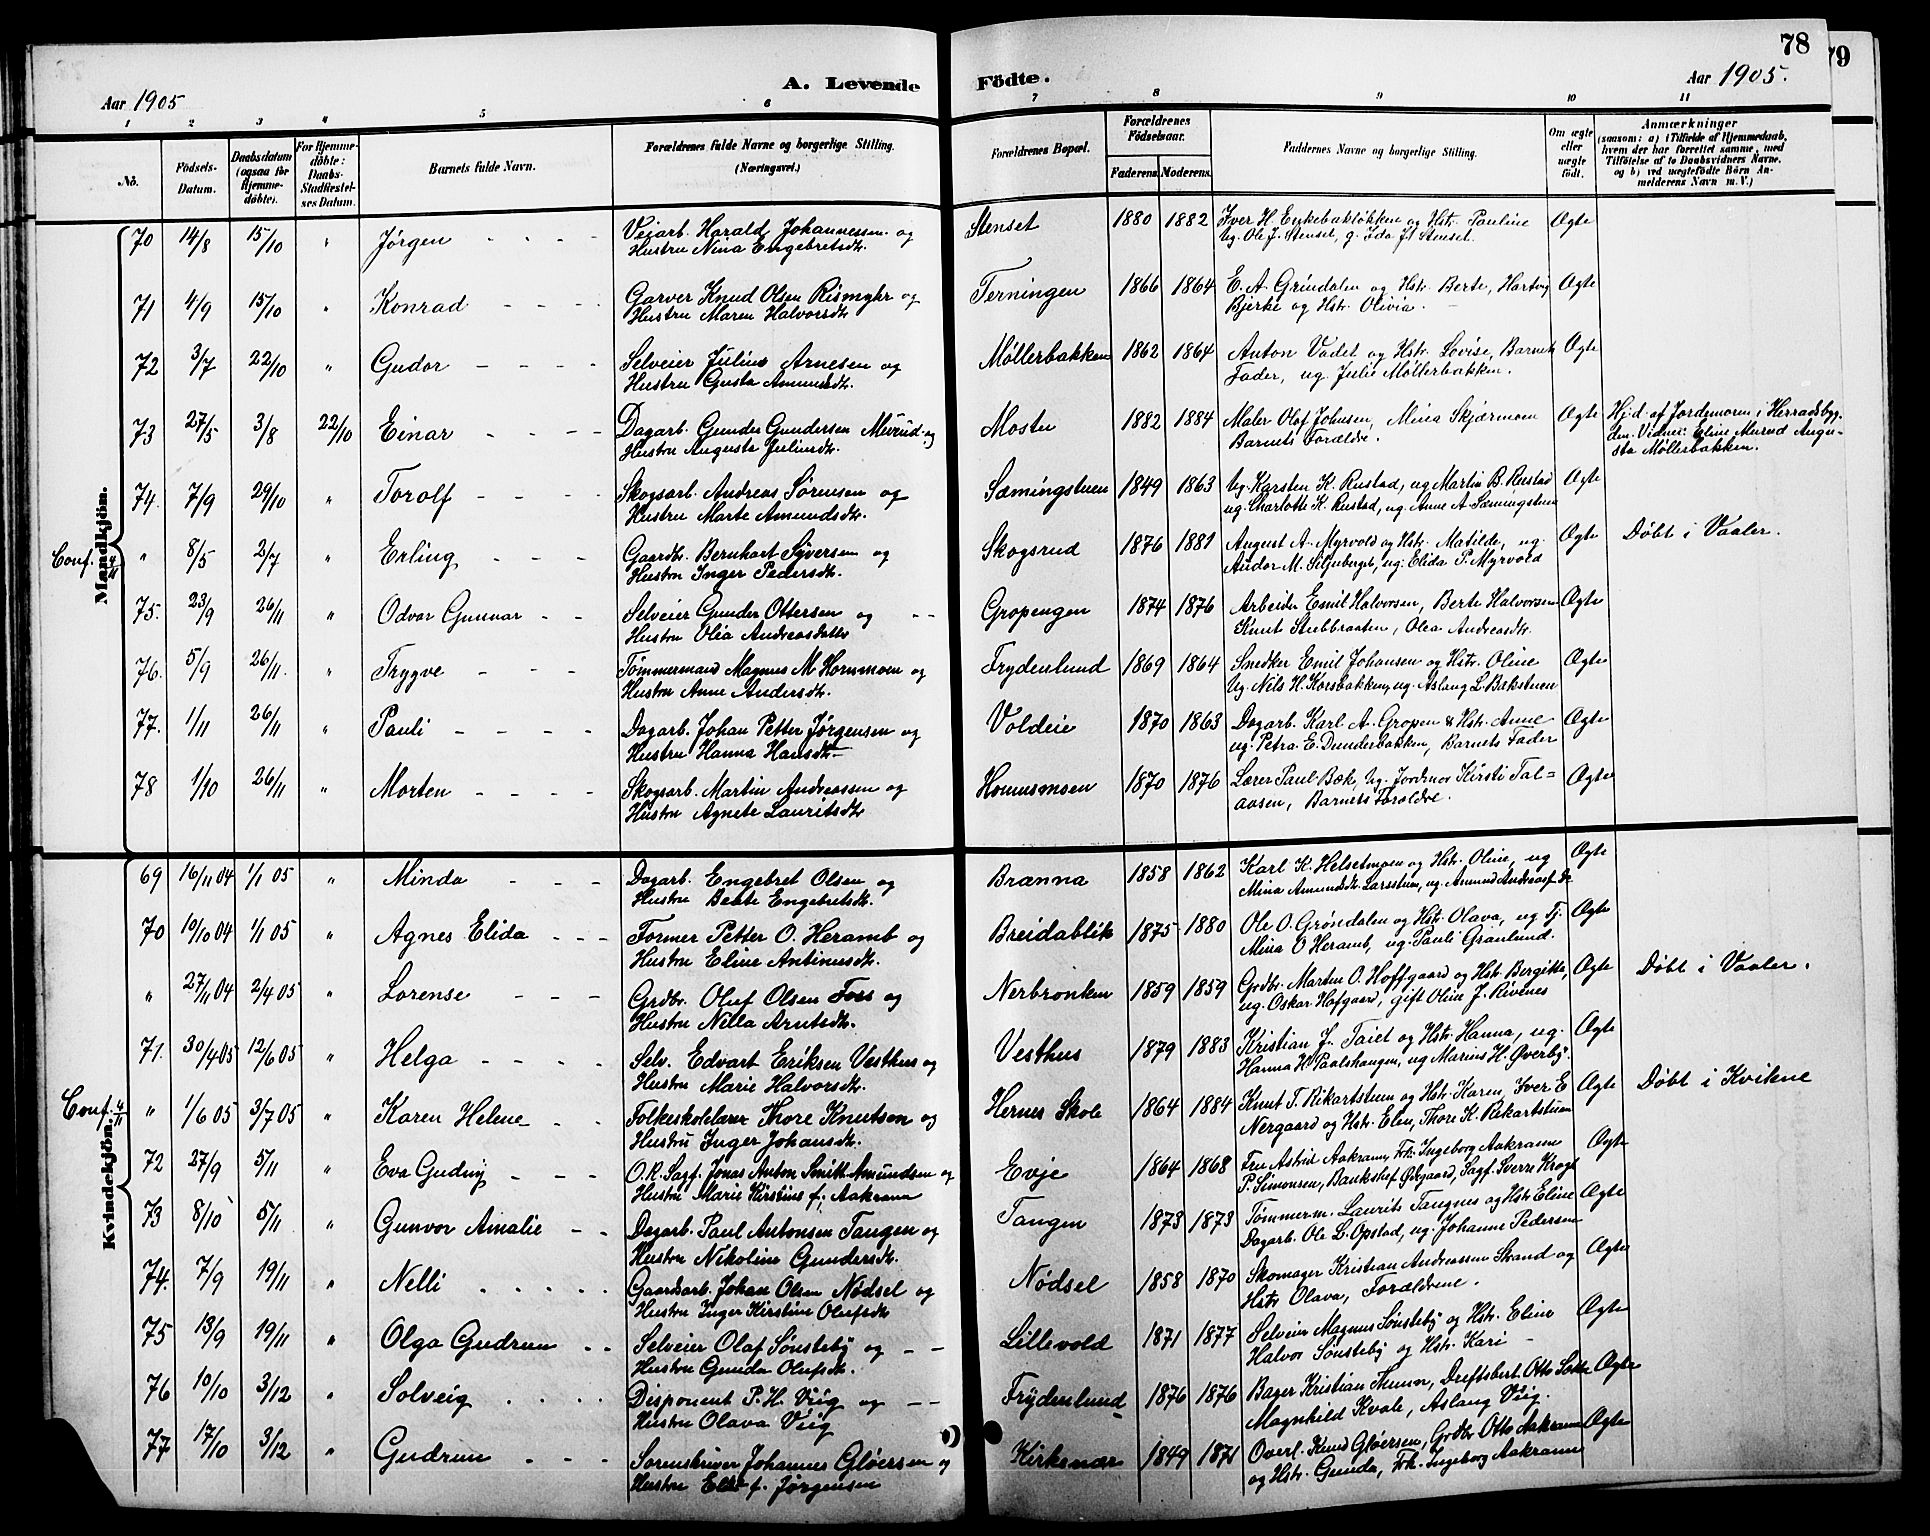 78
79
Aar 1905
A. Levende
Födte.
Aar 1905.
1 2 3 4 5 6 7 8 9 10 11
No.
Födsels-
Datum.
Daabsdatum
(ogsaa for
Hjemme-
döbte).
For Hjemme-
döbte:
Daabs-
Stadfæstel-
ses Datum.
Barnets fulde Navn.
Forældrenes fulde Navne og borgerlige Stilling.
(Næringsvei.)
Forældrenes Bopæl.
Forældrenes
Födselsaar.
Faderens. Moderens.
Faddernes Navne og borgerlige Stilling.
Om ægte
eller
uægte
födt.
Anmærkninger
(saasom: a) i Tilfælde af Hjemmedaab,
hvem der har forrettet samme, med
Tilföielse af to Daabsvidners Navne,
og b) ved uægtefödte Börn An-
melderens Navn m. V.)
Mandkjön.
70 14/8 15/10 " Jørgen - - - Veiarb. Harald Johannessen og Stenset 1880 1882 Iver H. Enkebakløkken og Hstr. Pauline Ægte
Hustru Nina Engebretsdtr. Ug. Ole J. Stenset, g. Ida J. Stenset.
71 4/9 15/10 " Konrad - - - - Garver Knud Olsen Rismyhr og Terningen 1866 1864 E. A. Grindalen og Hstr. Berte, Hartvig Ægte
Hustru Maren Halvorsdtr. Bjerke og Hstr. Olivia.
72 3/7 22/10 " Gudor - - - - Selveier Julius Arnesen og Møllerbakken 1862 1864 Anton Vadet og Hstr. Lovise, Barnets Ægte
Hustru Gusta Amundsdtr. Fader, ug. Julie Møllerbakken.
73 27/5 3/8 22/10 Einar - - - - Dagarb. Gunder Gundersen Mørud og Mostu 1882 1884 Maler Olaf Johnsen, Mina Skjærmoen Ægte Hj.d. af Jordemoren i Herradsbyg-
Hustru Augusta Juliusdtr. Barnets Forældre. den. Vidner: Eline Mørud Augu-
sta Møllerbakken.
74. 7/9 29/10 " Torolf - - - - Skogsarb. Andreas Sørensen og Sæmingstuen 1849 1863 Ug. Karsten K. Rustad, ug Martin B. Rustad Ægte
Hustru Marte Amundsdtr. ug. Charlotte K. Rustad, ug. Anne A. Sæmingstuen
Conf. 4/11 " 8/5 2/7 " Erling - - - Gaardbr. Bernhart Syversen og Skogsrud 1876 1881 August A. Myrvold og Hstr. Matilde, ug. Ægte Døbt i Vaaler.
Hustru Inger Pedersdtr. Andor M. Siljuberget, ug. Elida P. Myrvold
75. 23/9 26/11 " Odvar Gunvar - - Selveier Gunder Ottersen og - - Gropengen 1874 1876 Arbeider Emil Halvorsen, Berte Halvorsen Ægte
Hustru Olia Andreasdatter Knut Stubbraaten, Olea Andreasdtr.
76. 5/9 26/11. " Trygve - - - Tømmermand Magnus M. Hornmoen og Frydenlund 1869 1864 Snedker Emil Johansen og Hstr. Oline Ægte
Hustru Anne Andersdtr. Ug. Nils H. Korsbakken, ug. Aslaug L. Bækstuen
77. 1/11 26/11 " Pauli - - - - Dagarb. Johan Petter Jørgensen og Voldeie 1870 1863 Dagarb. Karl A. Gropen & Hstr. Anne Ægte
Hustru Hanna Hansdtr. ug. Petra E. Dunderbakken, Barnets Fader
78 1/10 26/11 " Morten - - - - Skogsarb. Martin Andreassen og 1870 1876 Lærer Paul Bæk, Ug. Jordmor Kirsti Tal= Ægte
Hustru Agnete Lauritsdtr aasen, Barnets Forældre.
Kvindekjön.
69 16/11 04 1/1 05 " Minda - - - Dagarb. Engebret Olsen og Brænna 1858 1862 Karl K. Helsetmoen og Hstr. Oline, ug Ægte
Hustru Beate Engebretsdtr. Mina Amundsdtr. Larsstuen, ug. Amund
70 10/10 04 1/1 05 " Agnes Elida - - - Former Petter O. Heramb og Breidablik 1875 1880 Ole O. Grøndalen og Hstr. Olava, ug Tj. Ægte
Hustru Eline Antinusdtr. Mina O Heramb, ug. Pauli Granlund.
" 27/11 04 2/4 05 " Lorense - - - Grdbr. Oluf Olsen Foss og Nerbronken 1859 1859 Grdbr. Marten O. Hoffgaard og Hstr. Bergitte, Ægte Døbt i Vaaler.
Hustru Nilla Arntsdtr. ug. Oskar Hofgaard, gift Oline J. Rivenes
71. 30/4 05 12/6 05 " Helga - - - - Selv. Edvart Eriksen Vesthus og Vesthus 1879 1883 Kristian J. Taiet og Hstr. Hanna, ug. Ægte
Hustru Marie Halvorsdtr. Hanna H. Paalshaugen, ug Marius H. Øverby.
Conf. 4/11 " 1/6 05 3/7 05 " Karen Helene - - Folkeskolelærer Thore Knutsen og Hernes Skole 1864 1884 Knut T. Rikartstuen og Hstr. Karen, Iver E Ægte Døbt i Kvikne
Hustru Inger Johansdtr. Nergaard og Hstr. Elen, Thore K. Rikartstuen
72 27/9 5/11 " Eva Guding - - - O.R.Sagf. Jonas Anton Smitt Amundsen og Evje 1864 1868 Fru Astrid Aakrann, Frk. Ingeborg Aakrann Ægte
Hustru Marie Kirstine f. Aakrann P. Simonsen, Bankshef Ødegaard, Sagf. Sverre Krogh
73 8/10 5/11 " Gunvor Amalie - - Dagarb. Paul Antonsen Tangen og Tangen 1873 1873 Tømmerm. Laurits Tangnes og Hstr. Eline Ægte
Hustru Nikoline Gundersdtr. Dagarb. Ole L. Opstad, ug Johanne Pedersen
74. 7/9 19/11 " Nelli . . . . . Gaardsarb. Johan Olsen Nødsel og Nødsel 1858 1870 Skomager Kristian Andreassen Strand og Ægte
Hustru Inger Kirstine Olufsdtr Hstr Olava, Forældrene.
75 13/9 19/11 " Olga Gudrun . . Selveier Olaf Sønsteby og - - Lillevold 1871 1877 Selveier Magnus Sønsteby og Hstr. Eline Ægte
Hustru Gunda Olufsdtr. Halvor Sønsteby og Hstr. Kari -
76 10/10 3/12 " Solveig . . . . Disponent P. H. Viig og - - Frydenlund 1876 1876 Bager Kristian Drftsbest. Otto Ægte
Hustru Olava Viig Magnhild Kvale, Aslaug Viig.
77 17/10 3/12 " Gudrun - - - Sorenskriver Johannes Gløersen og Kirkenær 1849 1871 Overl. Knud Gløersen, Grdbr. Otto Aakrann Ægte
Hustru f. Jørgensen og Hstr. Gunda, Frk. Ingeborg Aakrann